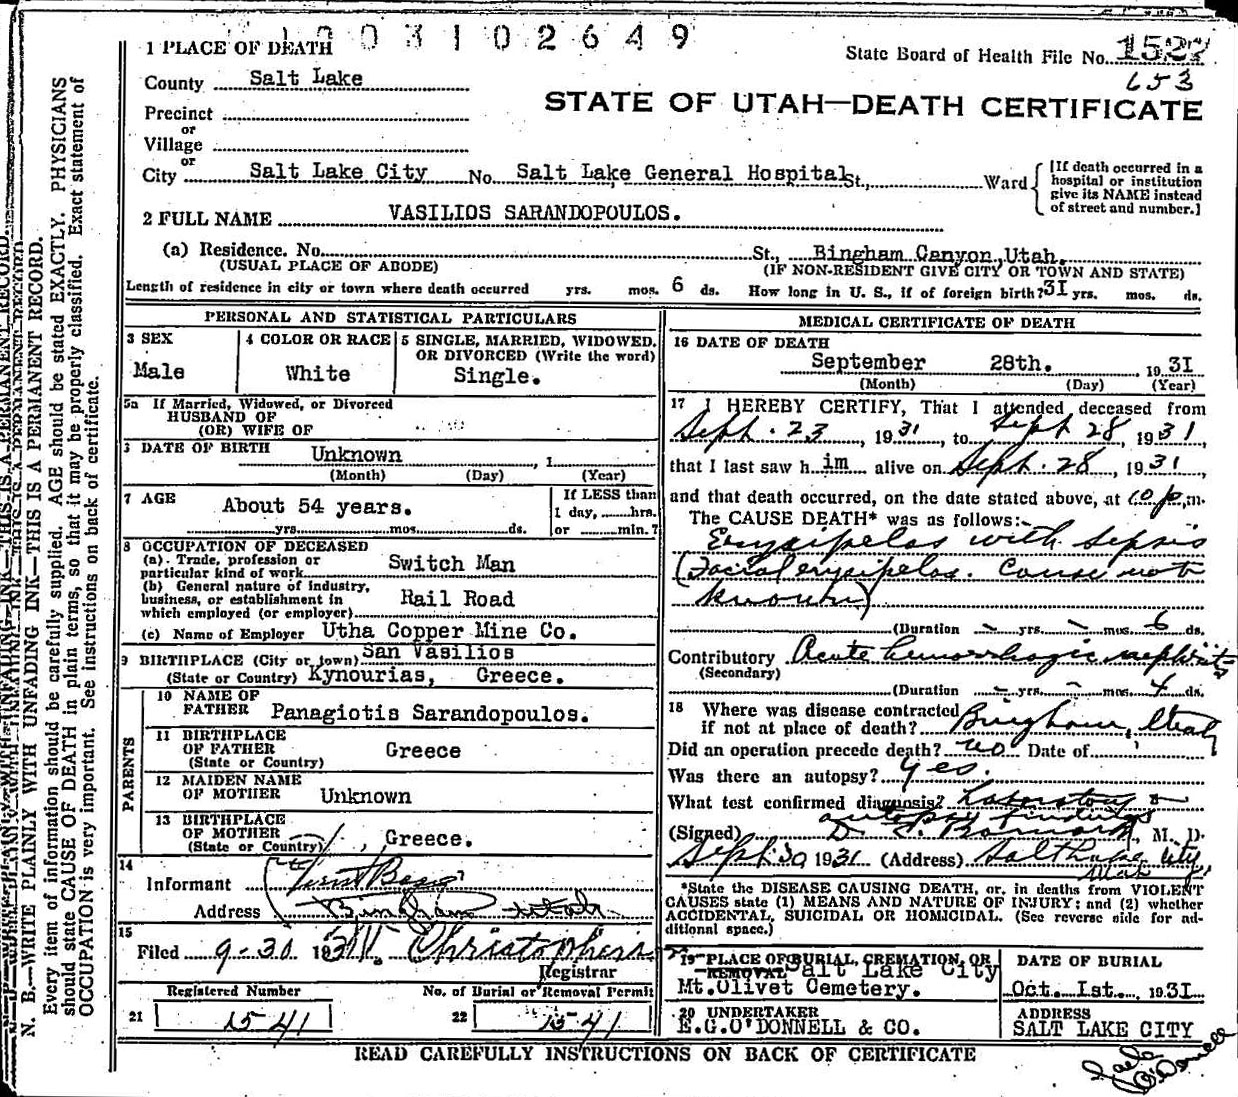 1003102649
1 PLACE OF DEATH
State Board of Health File No. 1527
653
County Salt Lake
STATE OF UTAH—DEATH CERTIFICATE
Precinct
or
Village
or
City Salt Lake City No. Salt Lake General Hospital St., Ward
[If death occurred in a
hospital or institution
give its NAME instead
of street and number.]
2 FULL NAME VASILIOS SARANDOPOULOS.
(a) Residence. No. St., Bingham Canyon, Utah.
(USUAL PLACE OF ABODE) (IF NON-RESIDENT GIVE CITY OR TOWN AND STATE)
Length of residence in city or town where death occurred yrs. mos. 6 ds. How long in U. S., if of foreign birth? 31 yrs. mos. ds.
PERSONAL AND STATISTICAL PARTICULARS
3 SEX
Male
4 COLOR OR RACE
White
5 SINGLE, MARRIED, WIDOWED,
OR DIVORCED (Write the word)
Single.
5a If Married, Widowed, or Divorced
HUSBAND OF
(OR) WIFE OF
6 DATE OF BIRTH Unknown , 1
(Month) (Day) (Year)
7 AGE About 54 years.
yrs. mos. ds.
If LESS than
1 day, hrs.
or min.?
8 OCCUPATION OF DECEASED
(a) Trade, profession or
particular kind of work Switch Man
(b) General nature of industry,
business, or establishment in
which employed (or employer) Rail Road
(c) Name of Employer Utha Copper Mine Co.
9 BIRTHPLACE (City or town) San Vasilios
(State or Country) Kynourias, Greece.
PARENTS
10 NAME OF
FATHER Panagiotis Sarandopoulos.
11 BIRTHPLACE
OF FATHER Greece
(State or Country)
12 MAIDEN NAME
OF MOTHER Unknown
13 BIRTHPLACE
OF MOTHER
(State or Country) , Greece.
14
Informant
Address Bingham Utah
15
Filed 9-30 1931 Christophers
Registrar
Registered Number
21 1541
No. of Burial or Removal Permit
22 1541
MEDICAL CERTIFICATE OF DEATH
16 DATE OF DEATH
September 28th. 1931
(Month) (Day) (Year)
17 I HEREBY CERTIFY, That I attended deceased from
Sept. 23, 1931, to Sept 28, 1931,
that I last saw h im alive on Sept. 28, 1931,
and that death occurred, on the date stated above, at 10 p.m.
The CAUSE DEATH* was as follows:
Erysipelas with sepsis
(Facial erysipelas. Cause not
known)
(Duration - yrs. - mos. 6 ds.
Contributory Acute hemorrhagic nephritis
(Secondary)
(Duration - yrs. - mos. 4 ds.
18 Where was disease contracted
if not at place of death? Bingham, Utah
Did an operation precede death? no Date of
Was there an autopsy? yes.
What test confirmed diagnosis? Laboratory &
autopsy findings
(Signed) , M. D.
Sept. 30 1931 (Address) Salt Lake City,
Utah
*State the DISEASE CAUSING DEATH, or, in deaths from VIOLENT
CAUSES state (1) MEANS AND NATURE OF INJURY; and (2) whether
ACCIDENTAL, SUICIDAL OR HOMICIDAL. (See reverse side for ad-
ditional space.)
19 PLACE OF BURIAL, CREMATION, OR
REMOVAL Salt Lake City
Mt.Olivet Cemetery.
DATE OF BURIAL
Oct. 1st. 1931
20 UNDERTAKER
E.G.O'DONNELL & CO.
ADDRESS
SALT LAKE CITY
READ CAREFULLY INSTRUCTIONS ON BACK OF CERTIFICATE
O'Donnell
N. B.—WRITE PLAINLY WITH UNFADING INK—THIS IS A PERMANENT RECORD.
Every item of information should be carefully supplied. AGE should be stated EXACTLY. PHYSICIANS
should state CAUSE OF DEATH in plain terms, so that it may be properly classified. Exact statement of
OCCUPATION is very important. See Instructions on back of certificate.